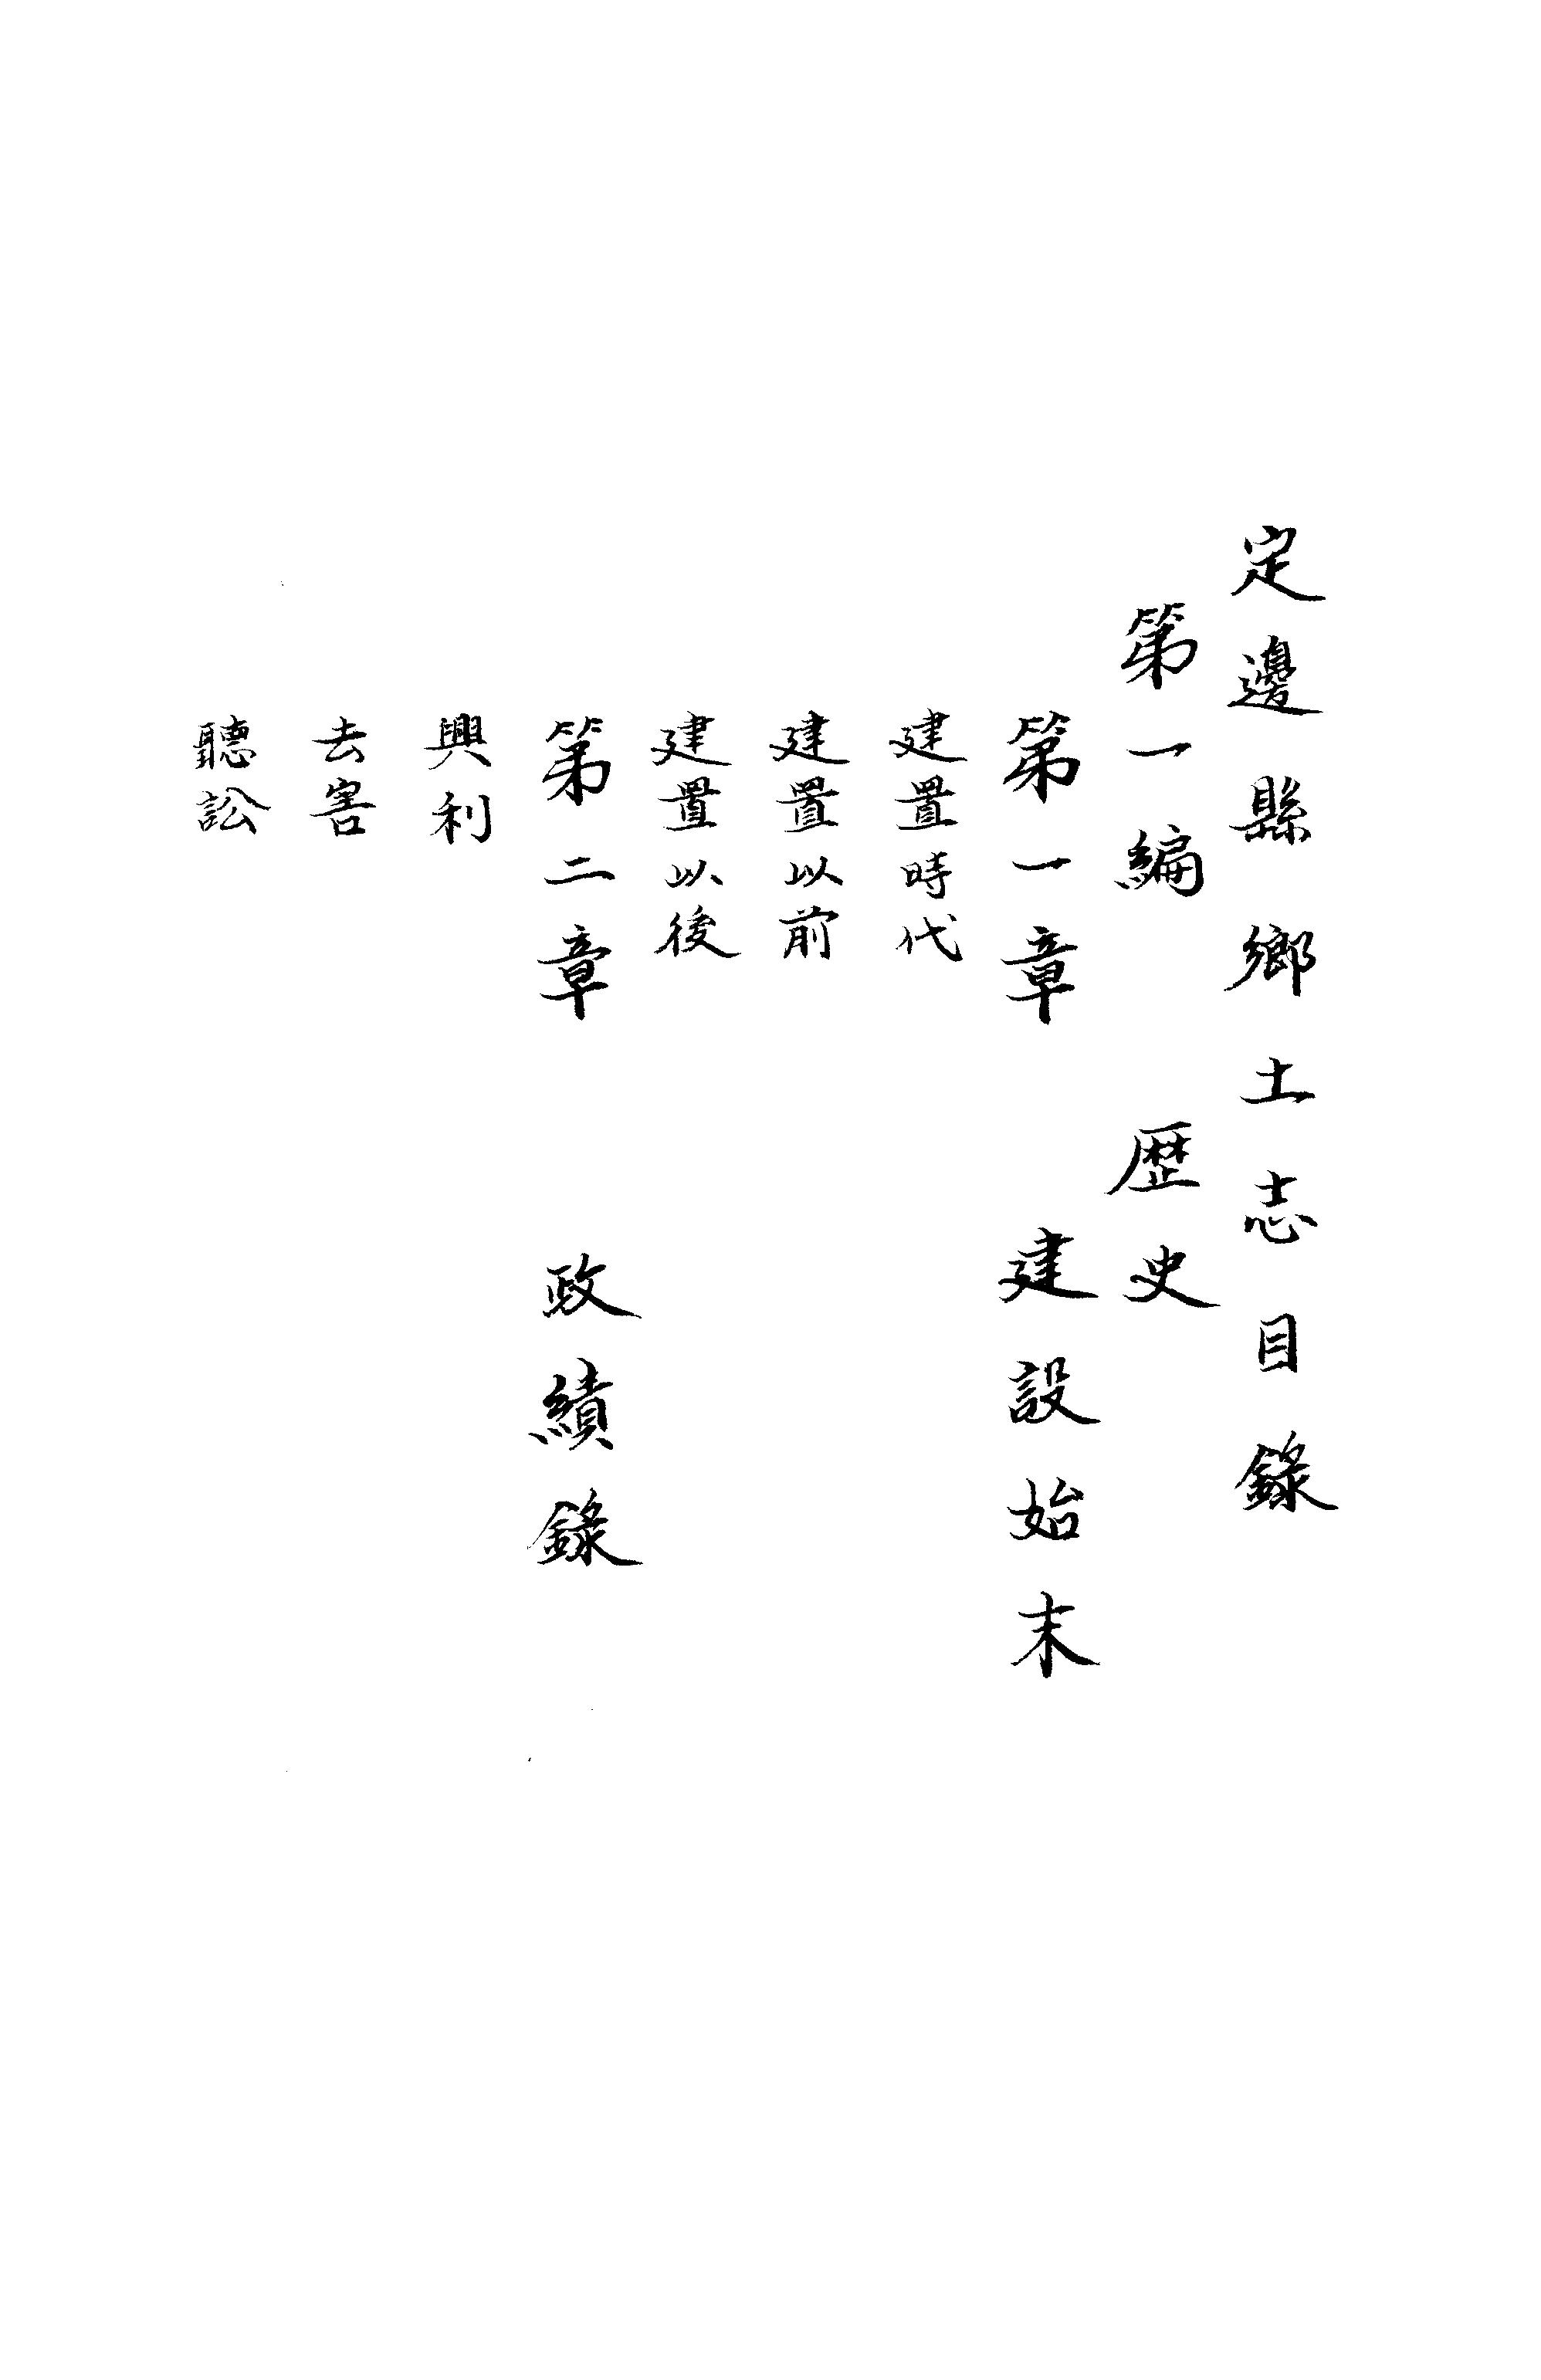 定邊縣鄉土志目錄
第一編　歷史
第一章　建設始末
建置時代
建置以前
建置以後
第二章　政績錄
興利
去害
聽訟